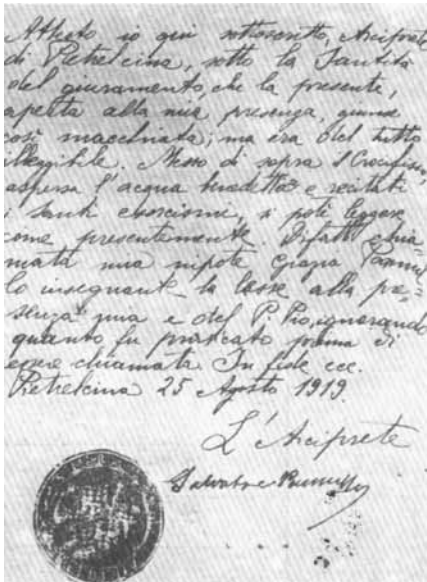 Attesto io qui sottoscritto, Arciprete
di Pietrelcina, sotto la Santità
del giuramento, che la presente,
aperta alla mia presenza, giunse
così macchiata; ma era del tutto
illeggibile. Messo di sopra il Crocifisso,
aspersa l'acqua benedetta e recitati
i santi esorcismi, si poté leggere
come presentemente. Difatti chia=
mata mia nipote Grazia Pannul=
lo insegnante la lesse alla pre=
senza mia e del P. Pio, ignorando
quanto fu praticato prima di
essere chiamata. In fede ecc.
Pietrelcina 25 Agosto 1919.
L'Arciprete
Salvatore Pannullo